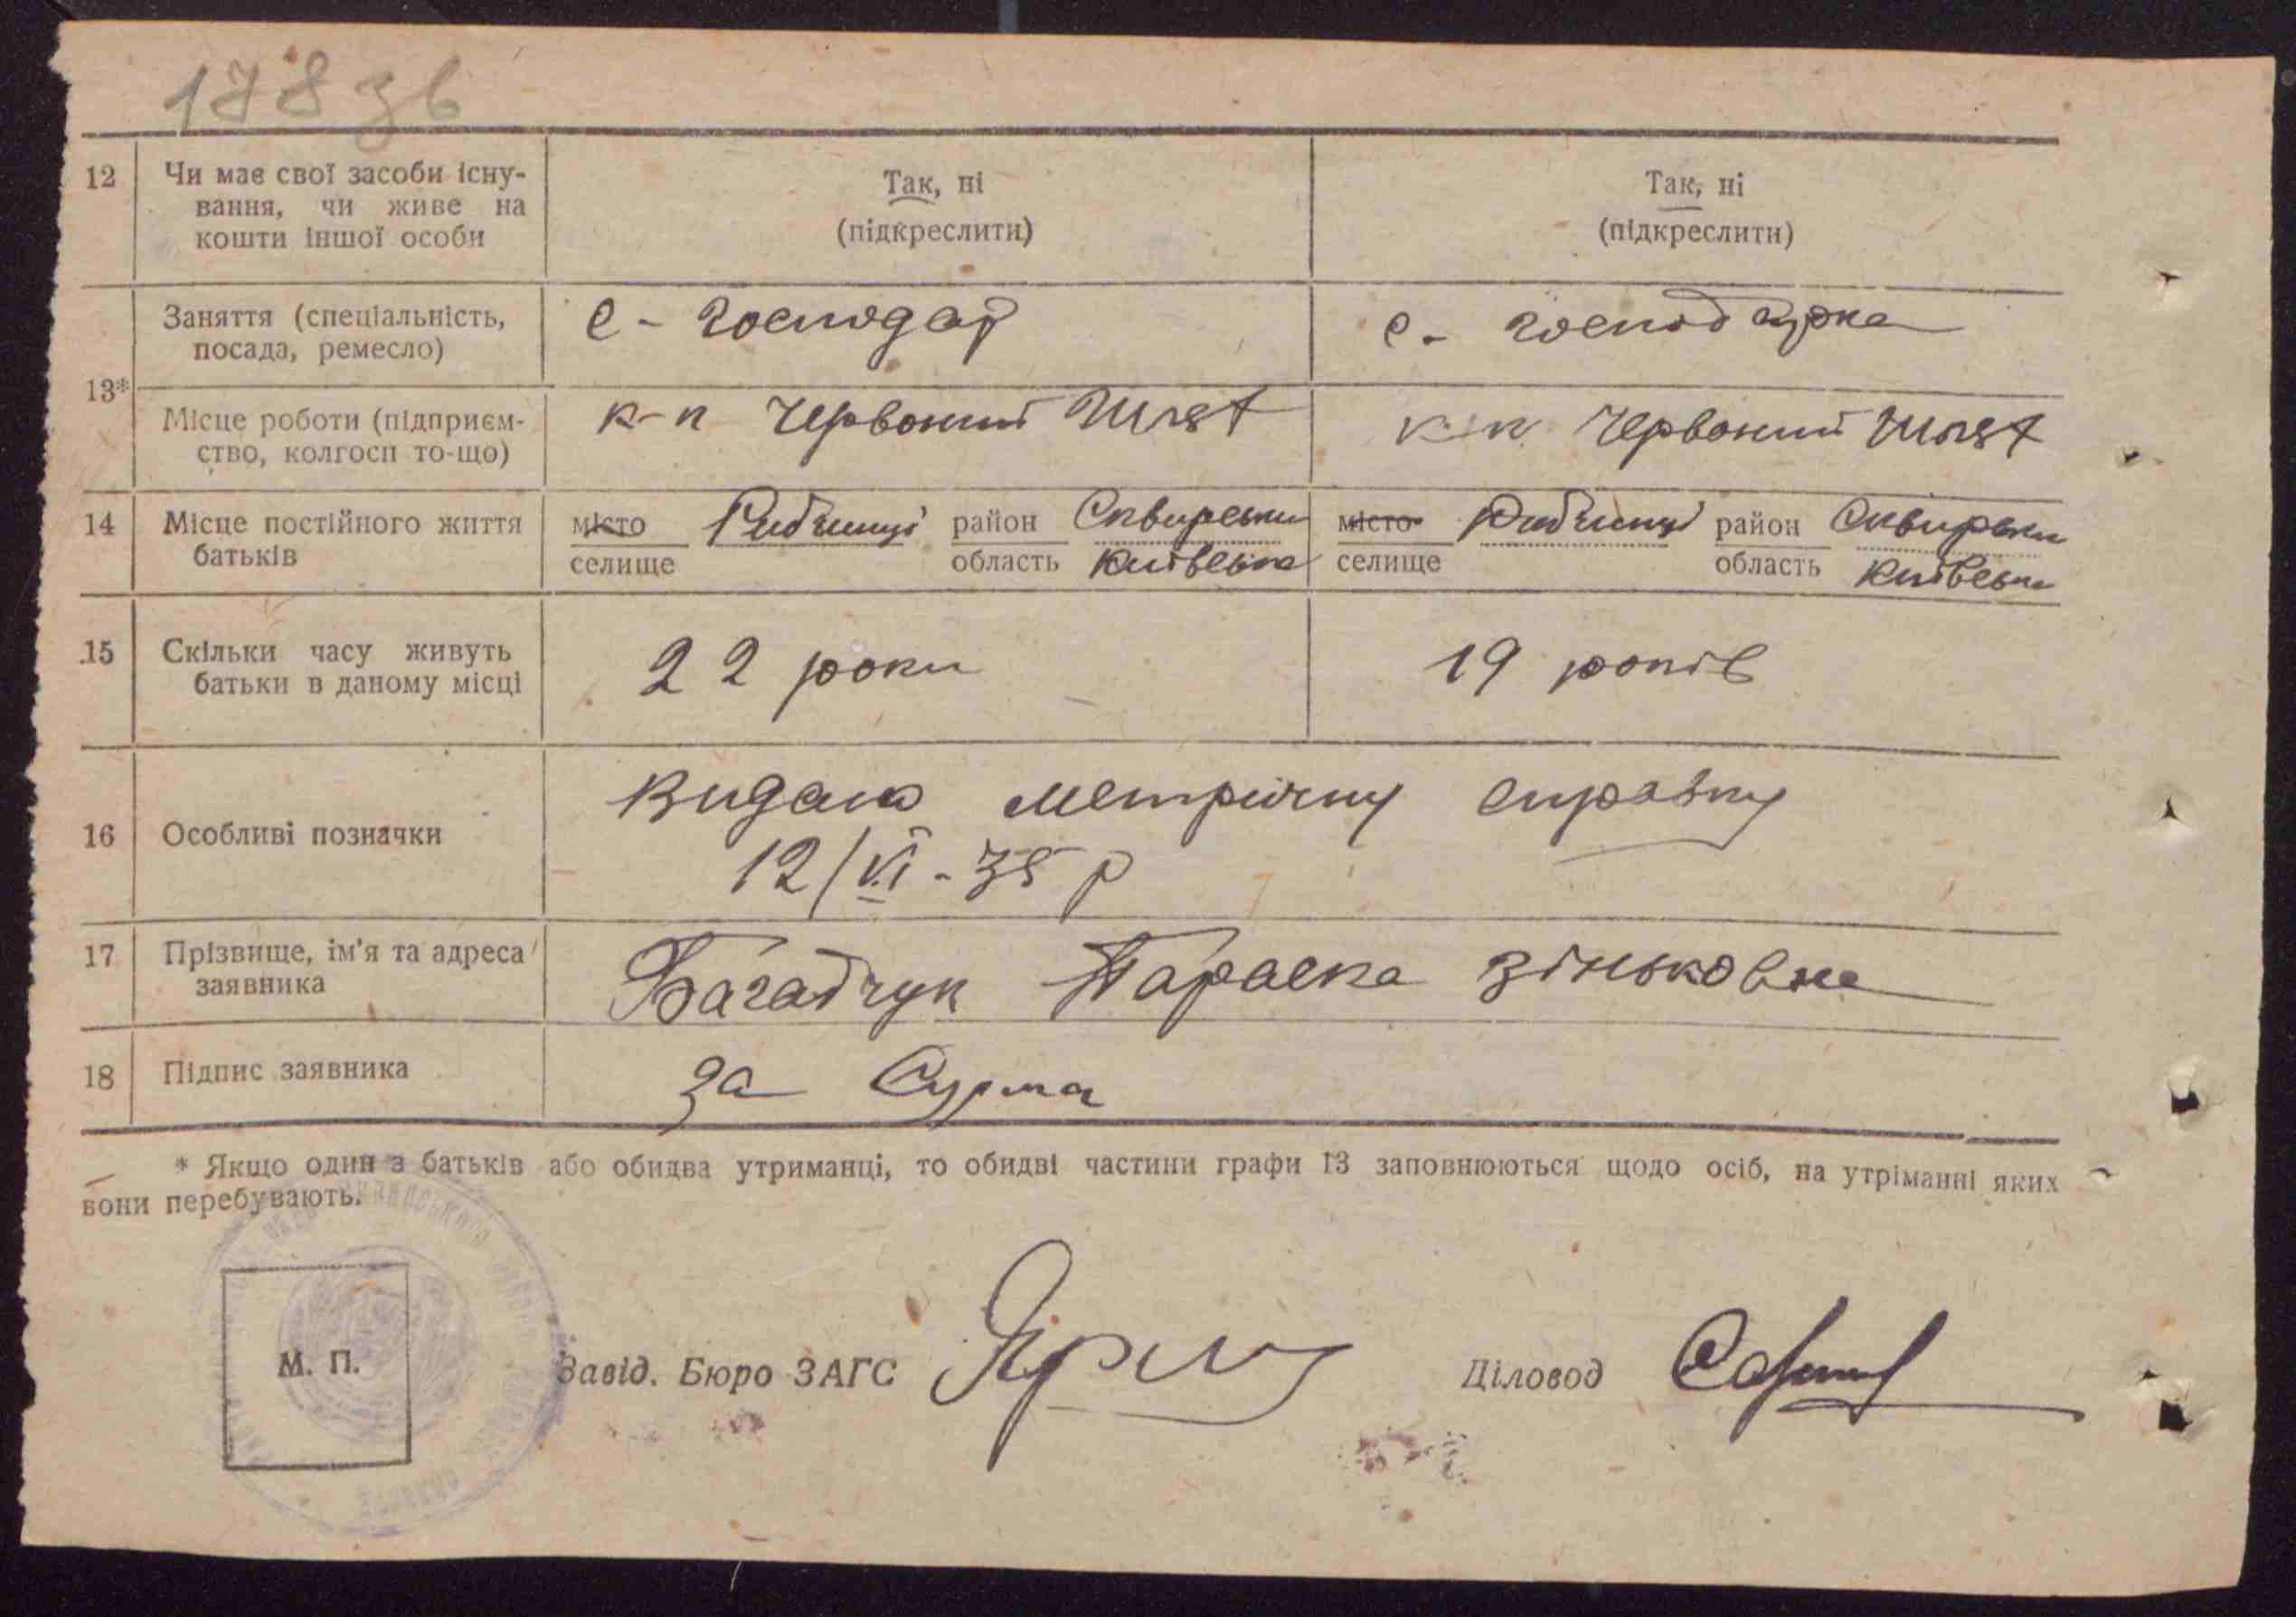 178 зв
12 Чи має свої засоби існу- Так, ні Так, ні
вання, чи живе на (підкреслити) (підкреслити)
кошти іншої особи
13* Заняття (спеціальність, с - господар с. - господарка
посада, ремесло)
Місце роботи (підприєм- к-п Червоний к-п Червоний
ство, колгосп то-що)
14 Місце постійного життя місто район Сквирськи місто район
батьків селище область Київська селище область
15 Скільки часу живуть 22 роки 19 років
батьки в даному місці
16 Особливі позначки Видано метричну справку
12/VI - 35 р
17 Прізвище, ім'я та адреса Багатчук Параска Зіньковна
заявника
18 Підпис заявника за Сурма
* Якщо один з батьків або обидва утриманці, то обидві частини графи 13 заповнюються щодо осіб, на утріманні яких
вони перебувають.
М. П. Завід. Бюро ЗАГС Діловод